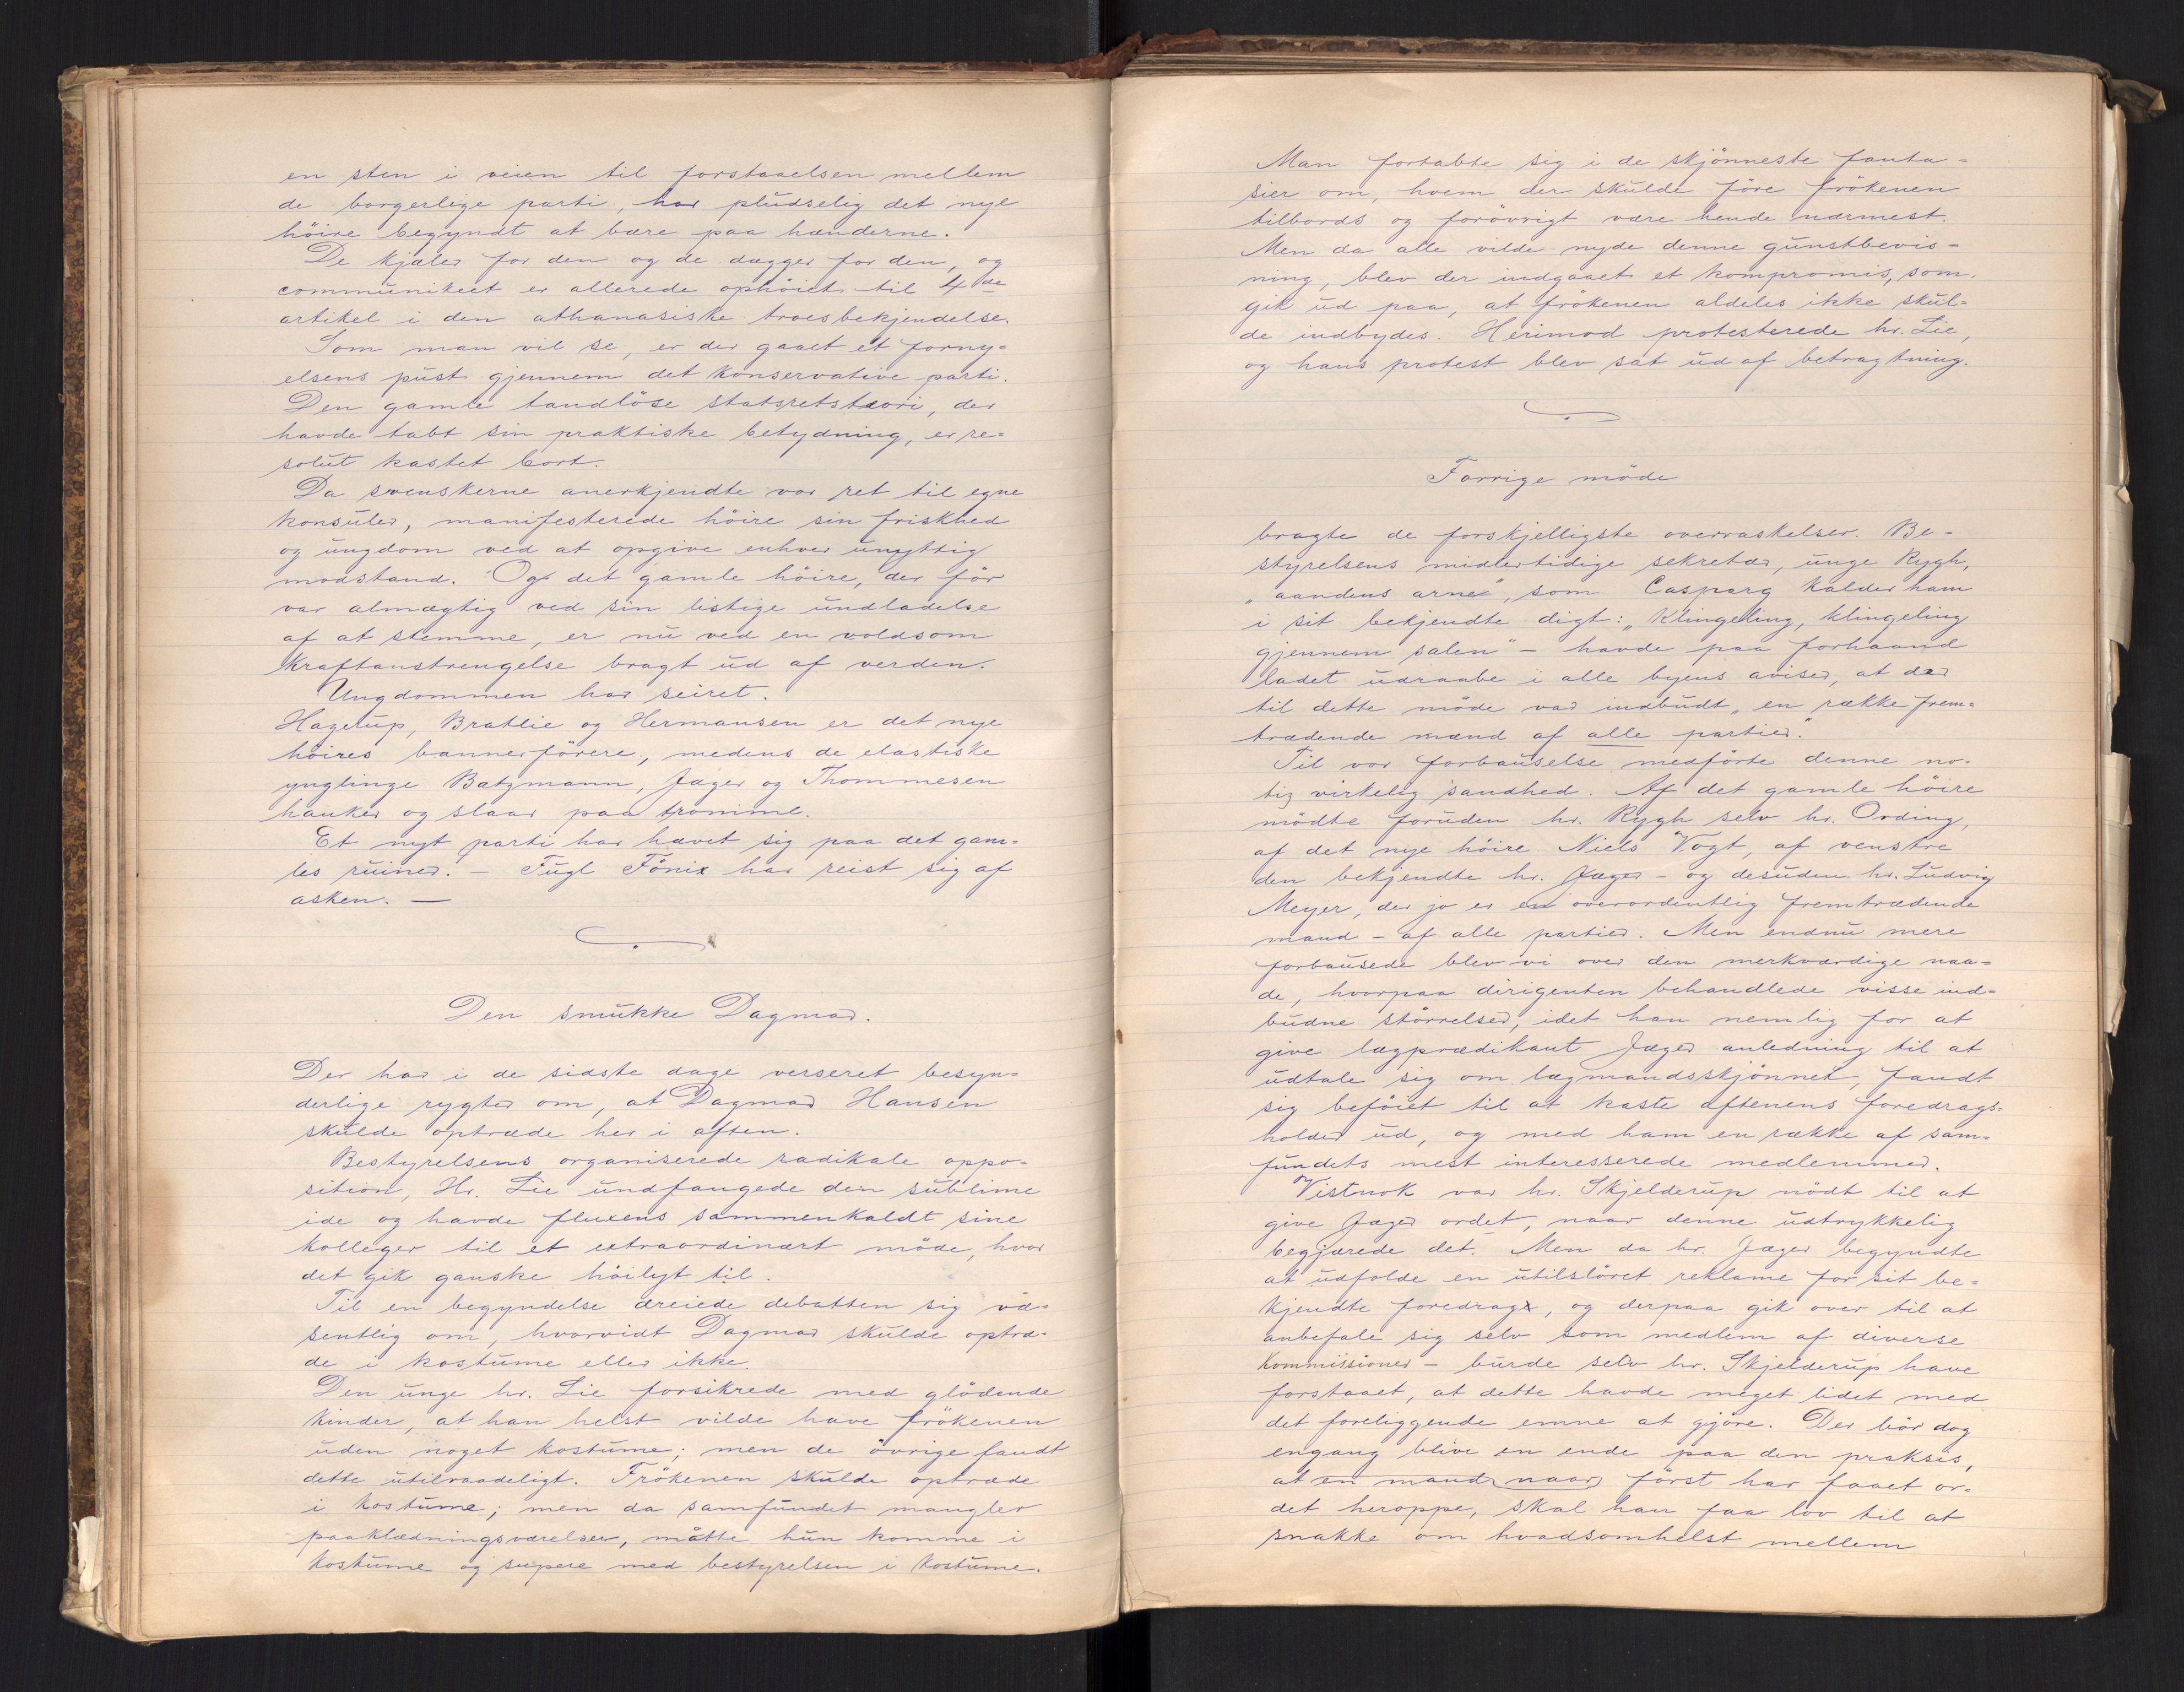 en sten i veien til forstaaelsen mellem
de borgerlige parti, har pludselig det nye
höire begyndt at bære paa hænderne.
De kjæler for den og de dægger for den, og
communikeet er allerede ophöiet til 4de
artikel i den athanasiske troesbekjendelse.
Som man vil se, er der gaaet et forny=
elsens pust gjennem det konservative parti.
Den gamle tandlöse statsretsteori, der
havde tabt sin praktiske betydning, er re=
solut kastet bort.
Da svenskerne anerkjendte vor ret til egne
konsuler, manifesterede höire sin friskhed
og ungdom ved at opgive enhver unyttig
modstand. Og det gamle höire, der för
var almægtig ved sin listige undladelse
af at stemme, er nu ved en voldsom
kraftanstrengelse bragt ud af verden.
Ungdommen har seiret.
Hagerup, Bratlie og Hermansen er det nye
höires bannerförere, medens de elastiske
ynglinge Bætzmann, Jæger og Thommesen
hauker og slaar paa tromme.
Et nyt parti har hævet sig paa det gam=
les ruiner. – Fugl Fönix har reist sig af
asken. —
Den smukke Dagmar.
Der har i de sidste dage verseret besyn=
derlige rygter om, at Dagmar Hansen
skulde optræde her i aften.
Bestyrelsens organiserede radikale oppo=
sition, Hr. Lie undfangede den sublime
ide og havde fluxens sammenkaldt sine
kolleger til et extraordinært möde, hvor
det gik ganske höilyt til.
Til en begyndelse dreiede debatten sig væ=
sentlig om, hvorvidt Dagmar skulde optræ=
de i kostume eller ikke.
Den unge hr. Lie forsikrede med glödende
kinder, at han helst vilde have frökenen
uden noget kostume; men de övrige fandt
dette utilraadeligt. Frökenen skulde optræde
i kostume; men da samfundet mangler
paaklædningsværelser, måtte hun komme i
kostume og supere med bestyrelsen i kostume.
Man fortabte sig i de skjönneste fanta=
sier om, hvem der skulde före frökenen
tilbords og forövrigt være hende nærmest.
Men da alle vilde nyde denne gunstbevis=
ning, blev der indgaaet et kompromis, som
gik ud paa, at frökenen aldeles ikke skul=
de indbydes. Herimod protesterede hr. Lie,
og hans protest blev sat ud af betragtning.
Forrige möde
bragte de forskjelligste overraskelser. Be=
styrelsens midlertidige sekretær, unge Rygh,
„aandens arne", som Casparg kalder ham
i sit bekjendte digt: „Klingeling, klingeling
gjennem salen" – havde paa forhaand
ladet udraabe i alle byens aviser, at der
til dette möde var indbudt „en række frem=
trædende mænd af alle partier."
Til vor forbauselse medförte denne no=
tiz virkelig sandhed. Af det gamle höire
mödte foruden hr. Rygh selv hr. Ording,
af det nye höire Niels Vogt, af venstre
den bekjendte hr. Jæger – og desuden hr. Ludvig
Meyer, der jo er en overordentlig fremtrædende
mand – af alle partier. Men endnu mere
forbausede blev vi over den merkværdige maa=
de, hvorpaa dirigenten behandlede visse ind=
budne störrelser, idet han nemlig for at
give lægprædikant Jæger anledning til at
udtale sig om lægmandsskjönnet, fandt
sig beföiet til at kaste aftenens foredrags=
holder ud, og med ham en række af sam=
fundets mest interesserede medlemmer.
Vistnok var hr. Skjelderup nödt til at
give Jæger ordet, naar denne udtrykkelig
begjærede det. Men da hr. Jæger begyndte
at udfolde en utilslöret reklame for sit be=
kjendte foredrag, og derpaa gik over til at
anbefale sig selv som medlem af diverse
kommissioner – burde selv hr. Skjelderup have
forstaaet, at dette havde meget lidet med
det foreliggende emne at gjöre. Der bör dog
engang blive en ende paa den praksis,
at en mand naar först har faaet or=
det heroppe, skal han faa lov til at
snakke om hvadsomhelst mellem